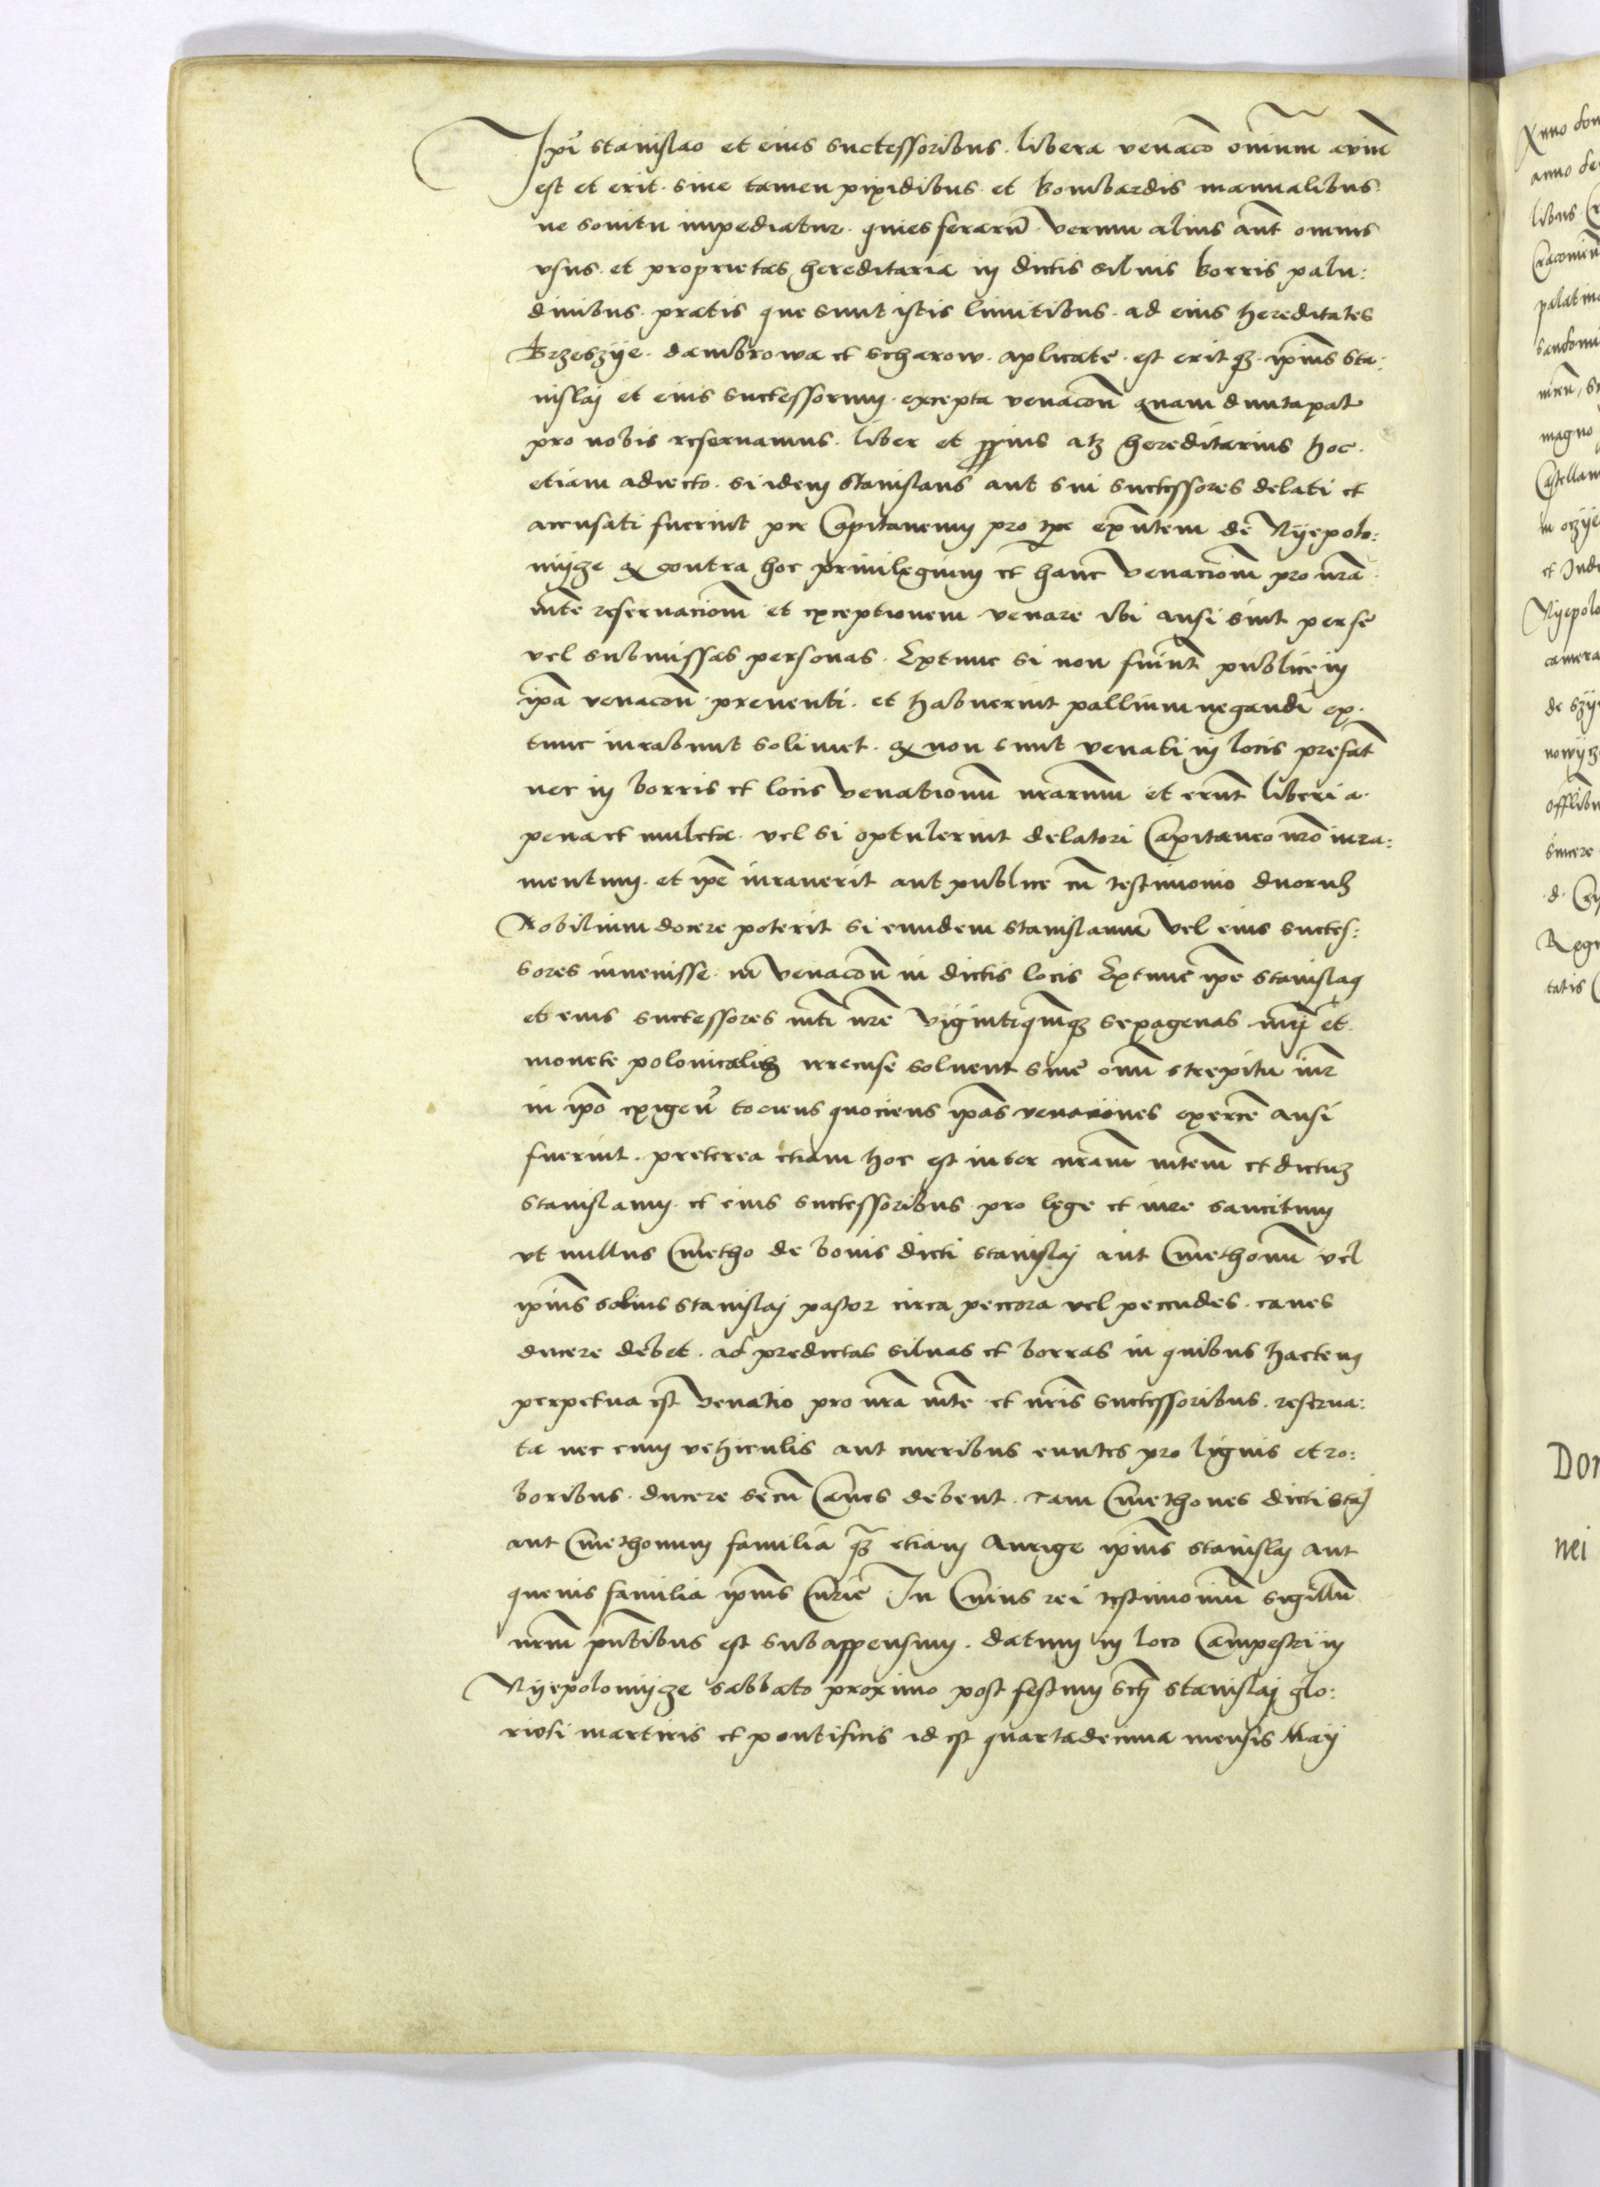 Ipĩ stanislao et eius successoribus. libera venacõ omnium aviũ
est et erit. sine tamen pixidibus. et bombardis manualibus.
ne sonitu impediatur. quies ferarũ. verum alius aut omnis
usus. et proprietas hereditaria in dictis silvis borris palu:
dinibus. pratis que sunt istis limitibus. ad eius hereditates
Brzeszije. dambrowa et scharow. aplicate. est erit qz. ipius sta:
nislaj et eius successorum. excepta venacõn quam duntaxat
pro nobis reservamus. liber et pprius atz hereditarius hoc.
etiam adiecto. si idem stanislaus aut sui successores delati et
accusati fuerint per Capitaneum pro tpe exñtem de Nijepolo:
mijcze qz contra hoc privilegium et hanc venacionẽ pro nrã.
mte reservacionẽ et exceptionem venare ibi ausi sint per se
vel submissas personas. Extunc si non fuiñt publice in
ipa venacõn. preventi. et habuerint pallium negandi ex.
tunc iurabunt solimet. qz non sunt venati in locis prefat
nec in borris et locis venationũ nrarum et erunt liberi a.
pena et mulcta. vel si optulerint delatori Capitaneo nrõ iura:
mentum. et ipe iuraverit aut publice cũ testimonio duoruz
Nobilium docere poterit si eundem stanislaum vel eius succes:
sores invenisse. in venacõn in dictis locis Extunc ipe stanislaq
et eius successores mti nrẽ vigintiquinqz sexagenas. nuij et.
monete polonicaliz irrecuse solvent sine omni strepitu iur
in ipõ exigeñ tociens quociens ipas venaciones exercẽ ausi
fuerint. preterea etiam hoc est inter nram mtem et dictuz
stanislaum. et eius successoribus. pro lege et iure sancitum
ut nullus Cmetho de bonis dicti stanislaj aut Cmethonũ vel
ipius solius stanislaj pastor circa peccora vel pecudes. canes
ducere debet. ad predictas silvas et borras in quibus hacteq
perpetua est venatio pro nra mte et nris successoribus. reserva:
ta nec cum vehiculis aut curribus euntes pro lignis et ro:
boribus. ducere secũ Canes debent. tam Cmethones dicti staj
aut Cmethonum familia qz etiam Aurige ipius stanislaj aut
quevis familia ipius Curie In Cuius rei testimoniũ sigillũ
nrm pñtibus est subappensum. datum in loco Campestri in
Nijepolomijcze sabbato proximo post festum sctj stanislaj glo:
riosi martiris et pontificis id est quartadecima mensis Maij
Anno dom
libus
palatin
magno
Castellan
et Jnd
Nijepolo
camera
sincere
Regn
tatis
Don
nei